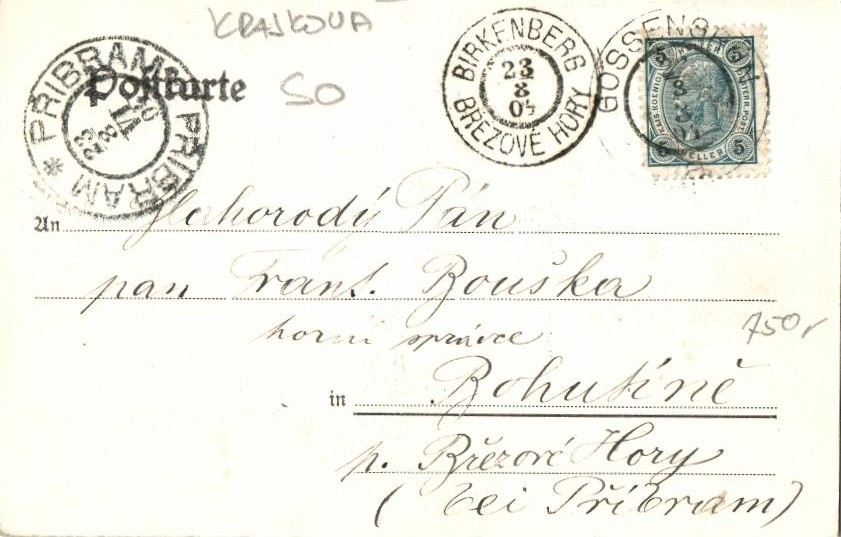 KRAJKOVA
50
Postkarte
PŘIBRAM * PŘIBRAM *
23 8
BIRKENBERG
23
8
04
BŘEZOVÉ HORY
GOSSENS
5 5
KAIS. KOENIGL. OESTERR. POST
5 HELLER 5
An Blahorodý Pán
pan Frant. Bouška
horní správce
750,-
in Bohutíně
p. Březové Hory
(bei Příbram)